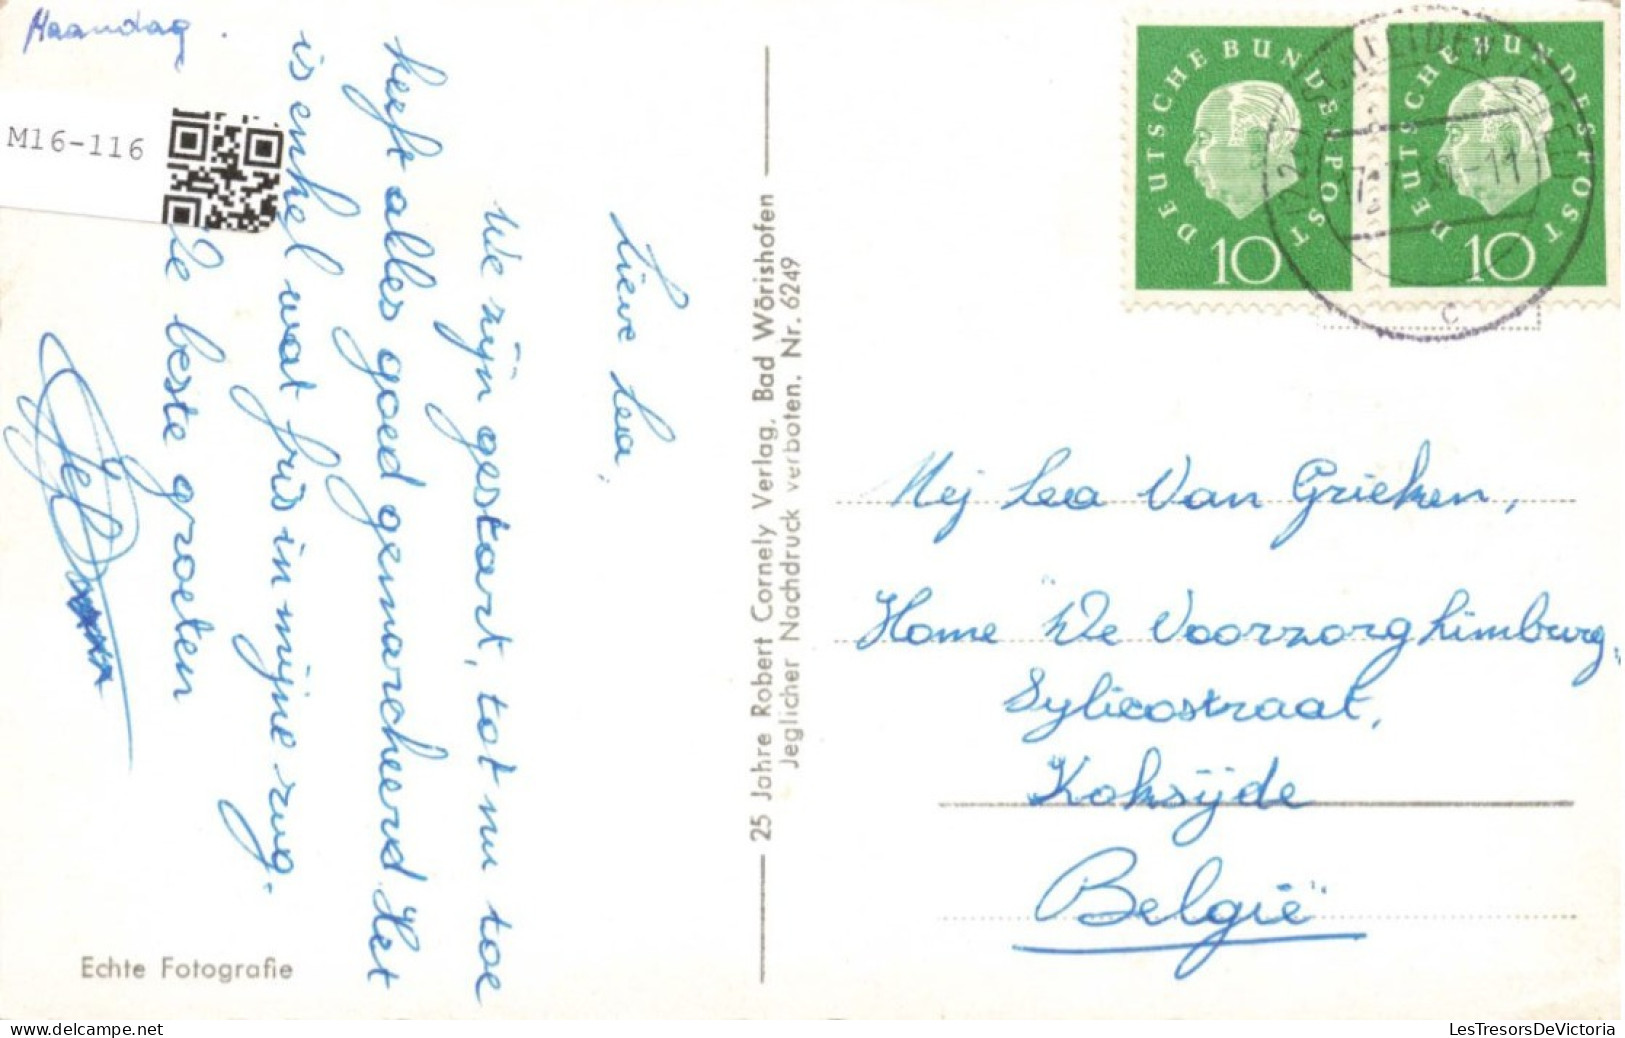 Maandag.
M16-116
Lieve Lea,
We zijn gestart, tot nu toe
heeft alles goed gemarcheerd. Het
is enkel wat fris in mijne rug.
De beste groeten
Jef
Echte Fotografie
25 Jahre Robert Cornely Verlag, Bad Wörishofen
Jeglicher Nachdruck verboten. Nr. 6249
DEUTSCHE BUNDESPOST
10
DEUTSCHE BUNDESPOST
10
c
Mej Lea Van Grieken,
Home De Voorzorg Limburg,
Sylicostraat,
Koksijde
België
www.delcampe.net
LesTresorsDeVictoria